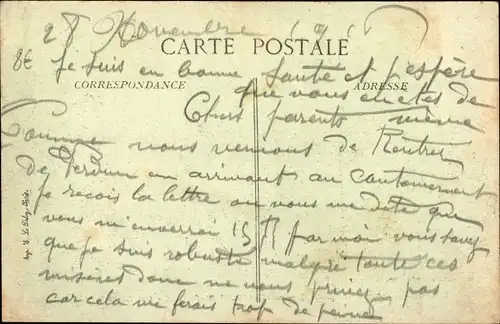 28 Novembre 191
CARTE POSTALE
8€
Je suis en bonne santé et j'espère
CORRESPONDANCE
ADRESSE
que vous en etes de
même
Chers parents
Comme nous venions de Rentrer
de Verdun en arrivant au cantonnement
je recois la lettre ou vous me dite que
vous m'enverrai 15 par moi vous savez
que je suis robuste malgré toute ces
misères donc ne vous privez pas
car cela me ferais trop de peine